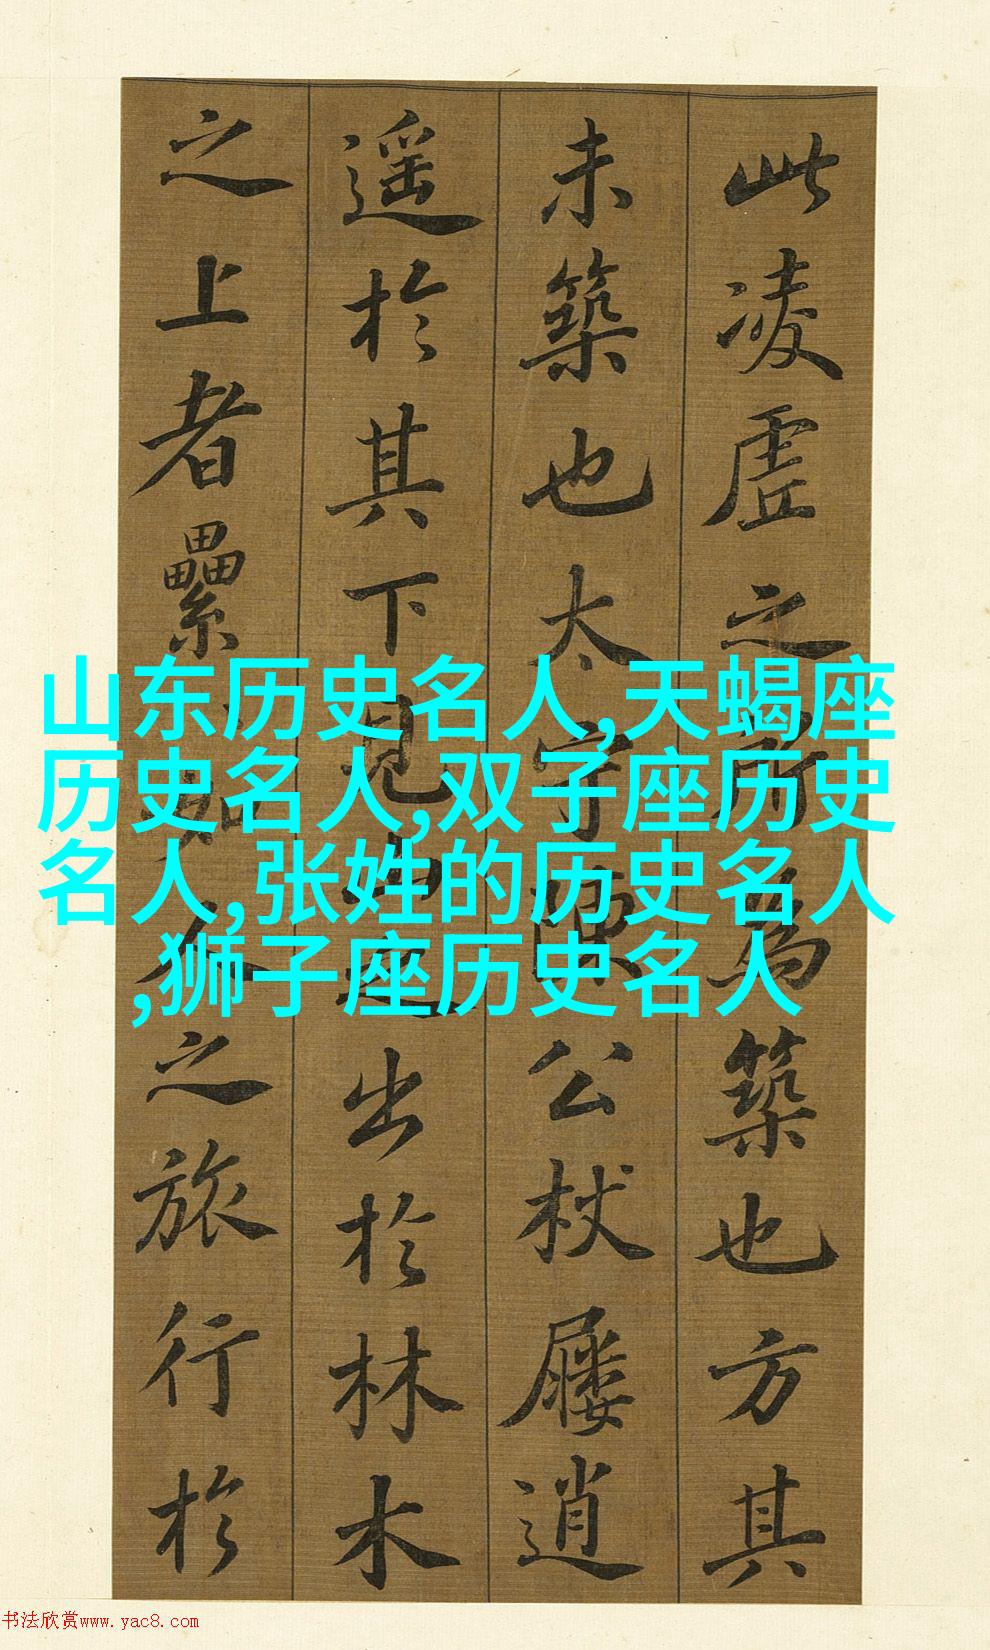 此凌虛之所為築也方其
未築也太守陳公杖屨逍
遥於其下見山之出於林木
之上者纍纍如人之旅行於
山东历史名人,天蝎座
历史名人,双子座历史
名人,张姓的历史名人
,狮子座历史名人
书法欣赏www.yac8.com